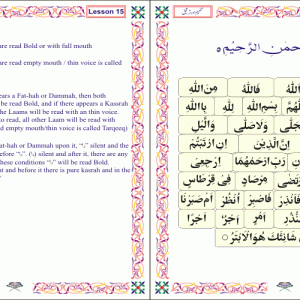 Lesson 15
are read Bold or with full mouth
are read empty mouth / thin voice is called
ppears a Fat-hah or Dammah, then both
be read Bold, and if there appears a Kasrah
the Laams will be read with an thin voice.
to read, all other Laam will be read with
d empty mouth/thin voice is called Tarqeeq)
at-hah or Dammah upon it, silent and the
efore silent after it, there are any
hese conditions will be read Bold.
nt and before it there is pure kasrah and in the
الرَّحِيْمِ
فَاللهُ مِنَ اللهِ
بِسْمِ اللهِ بِاللهِ
وَلَاصَلّٰى وَالَّيْلِ
اِنَّ الَّذِيْنَ اِنِ ارْتَبْتُمْ
رَبِّ ارْحَمْهُمَا اِرْجِعِيْ
مِرْصَادٍ فِيْ قِرْطَاسٍ
فَاَنْذِرْ فَاصْبِرْ اُنْظُرْ اَمْ صَبَرْنَا
اَمْرٍ اَجْرٌ اَجْرًا
شَانِئَكَ هُوَ الْاَبْتَرُ